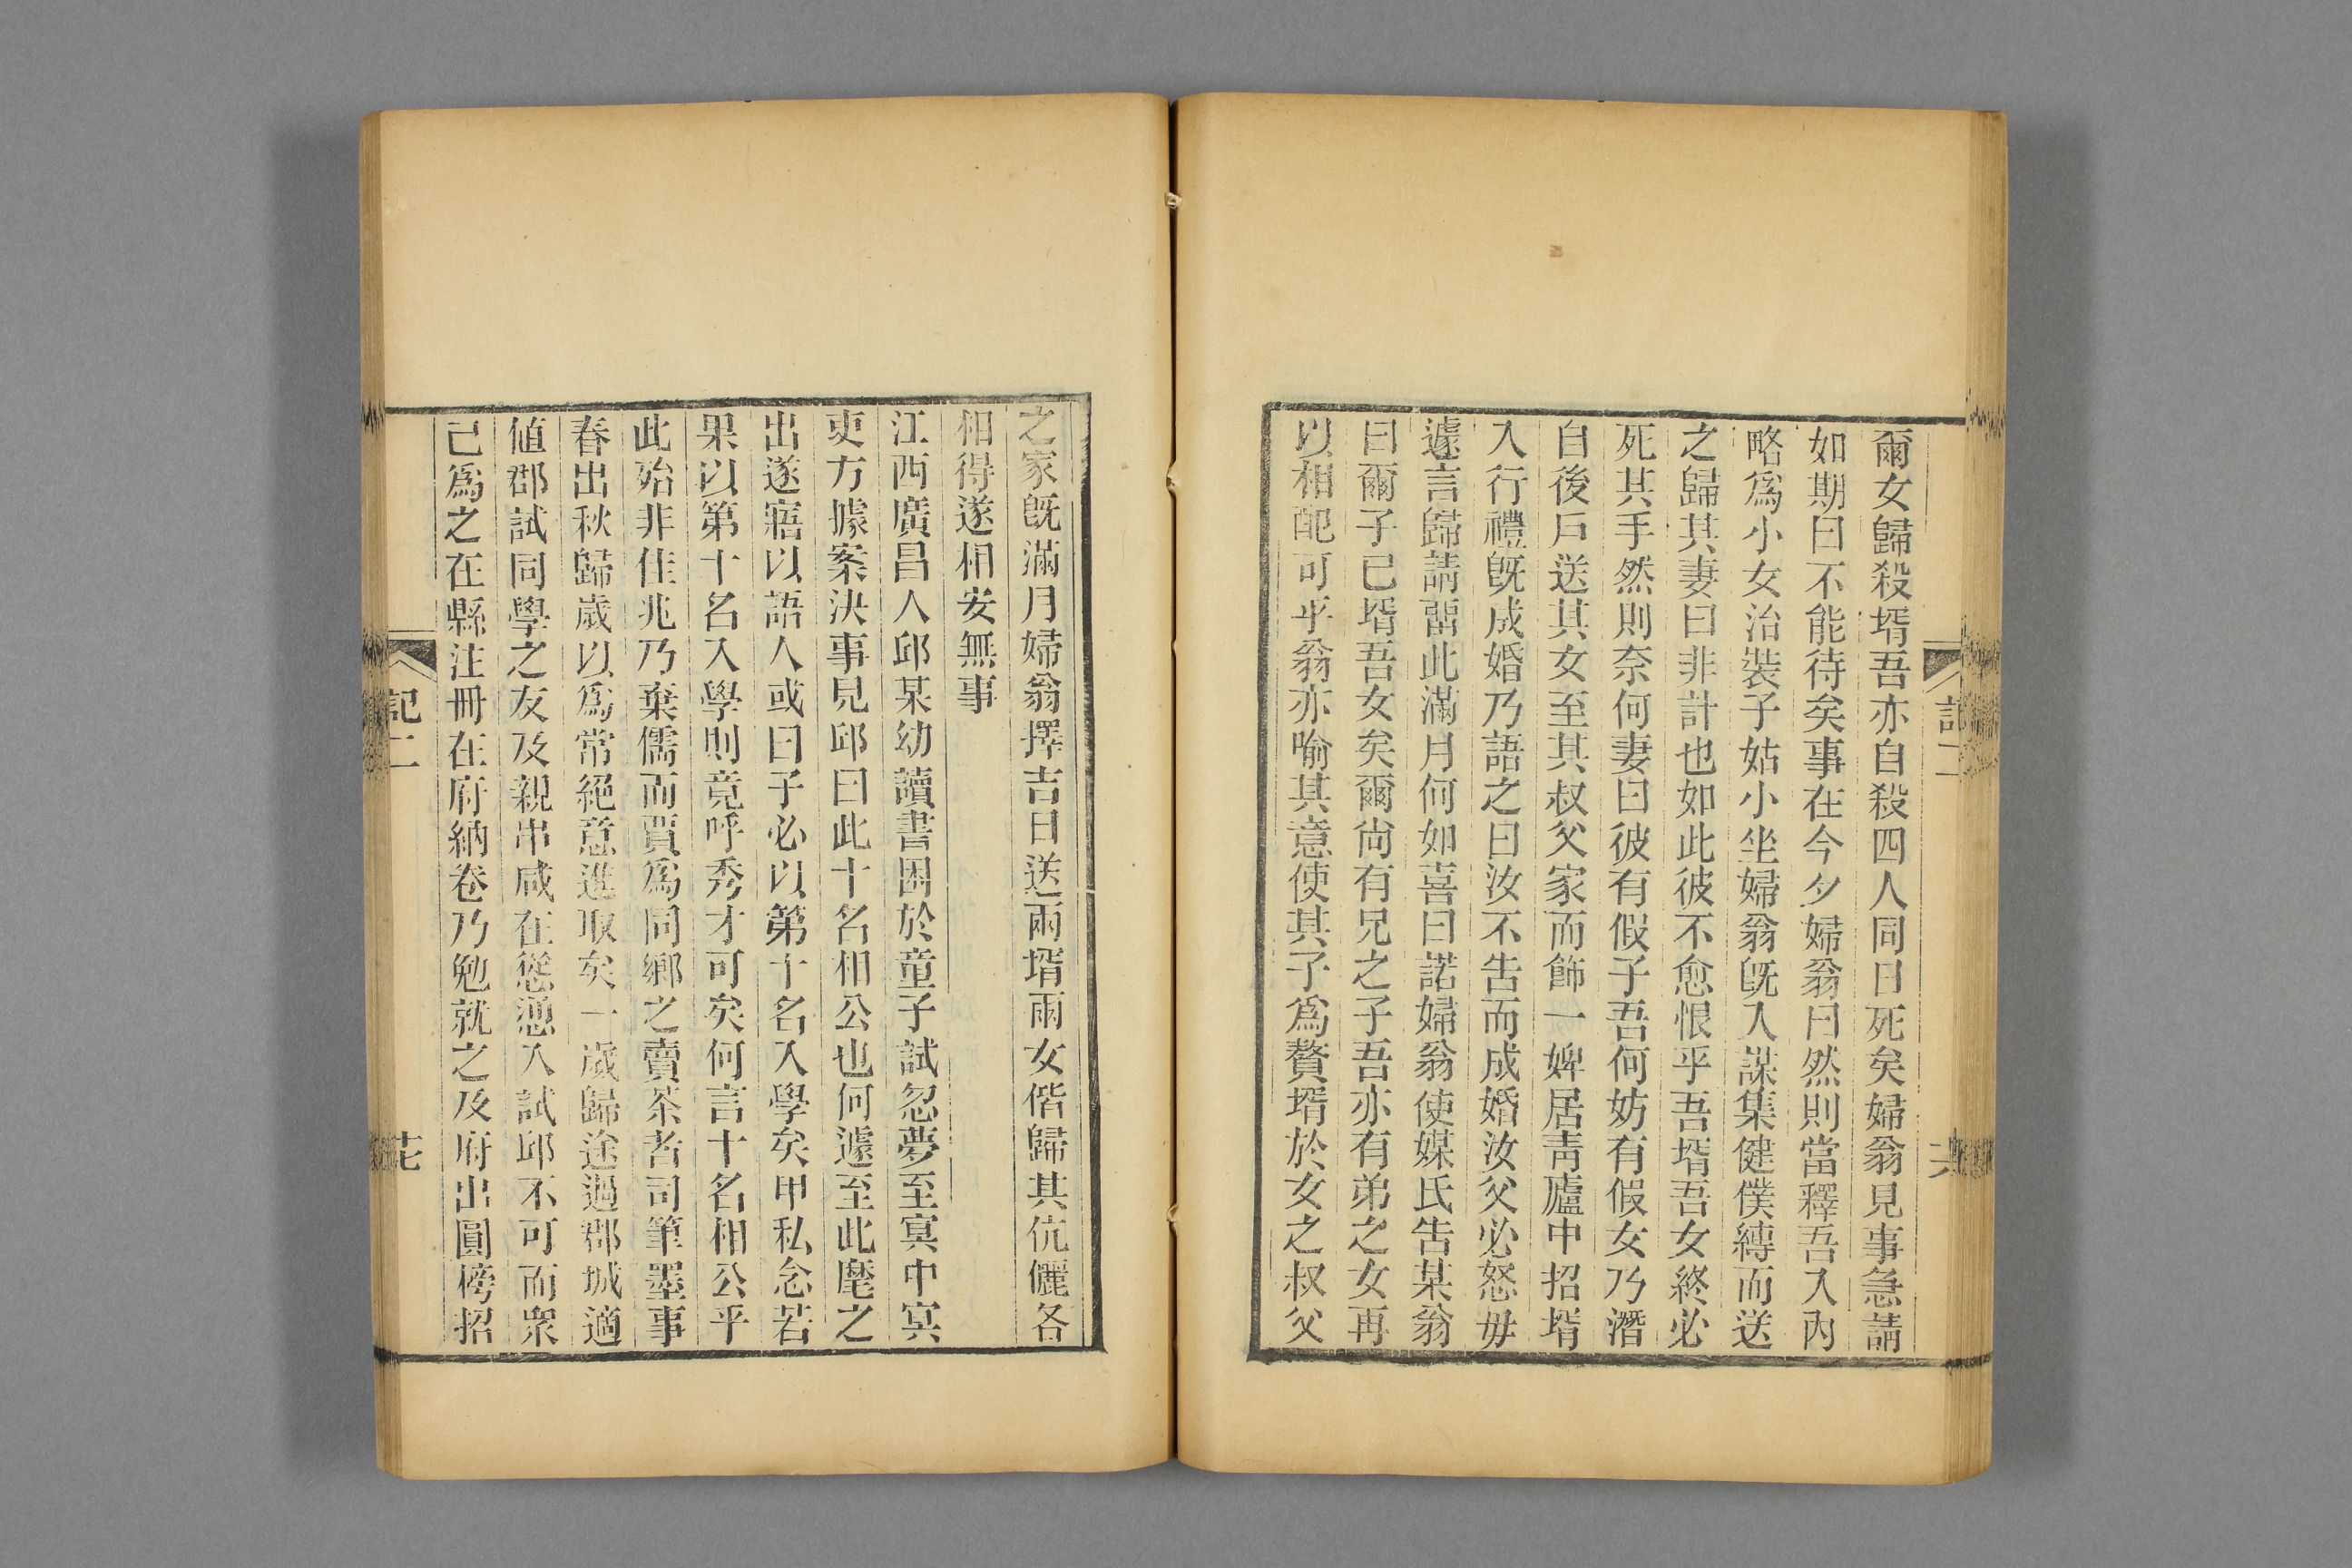 爾女歸殺壻吾亦自殺四人同日死矣婦翁見事急請
如期曰不能待矣事在今夕婦翁曰然則當釋吾入內
略爲小女治裝子姑小坐婦翁旣入謀集健僕縛而送
之歸其妻曰非計也如此彼不愈恨乎吾壻吾女終必
死其手然則奈何妻曰彼有假子吾何妨有假女乃潛
自後戶送其女至其叔父家而飾一婢居靑廬中招壻
入行禮旣成婚乃語之曰汝不告而成婚汝父必怒毋
遽言歸請留此滿月何如喜曰諾婦翁使媒氏告某翁
曰爾子已壻吾女矣爾尙有兄之子吾亦有弟之女再
以相配可乎翁亦喻其意使其子爲贅壻於女之叔父
之家旣滿月婦翁擇吉日送兩壻兩女偕歸其伉儷各
相得遂相安無事
江西廣昌人邱某幼讀書困於童子試忽夢至冥中冥
吏方據案決事見邱曰此十名相公也何遽至此麾之
出遂寤以語人或曰子必以第十名入學矣甲私念若
果以第十名入學則竟呼秀才可矣何言十名相公乎
此殆非佳兆乃棄儒而賈爲同鄉之賣茶者司筆墨事
春出秋歸歲以爲常絕意進取矣一歲歸途過郡城適
値郡試同學之友及親串咸在慫慂入試邱不可而衆
已爲之在縣注冊在府納卷乃勉就之及府出圓榜招
記二